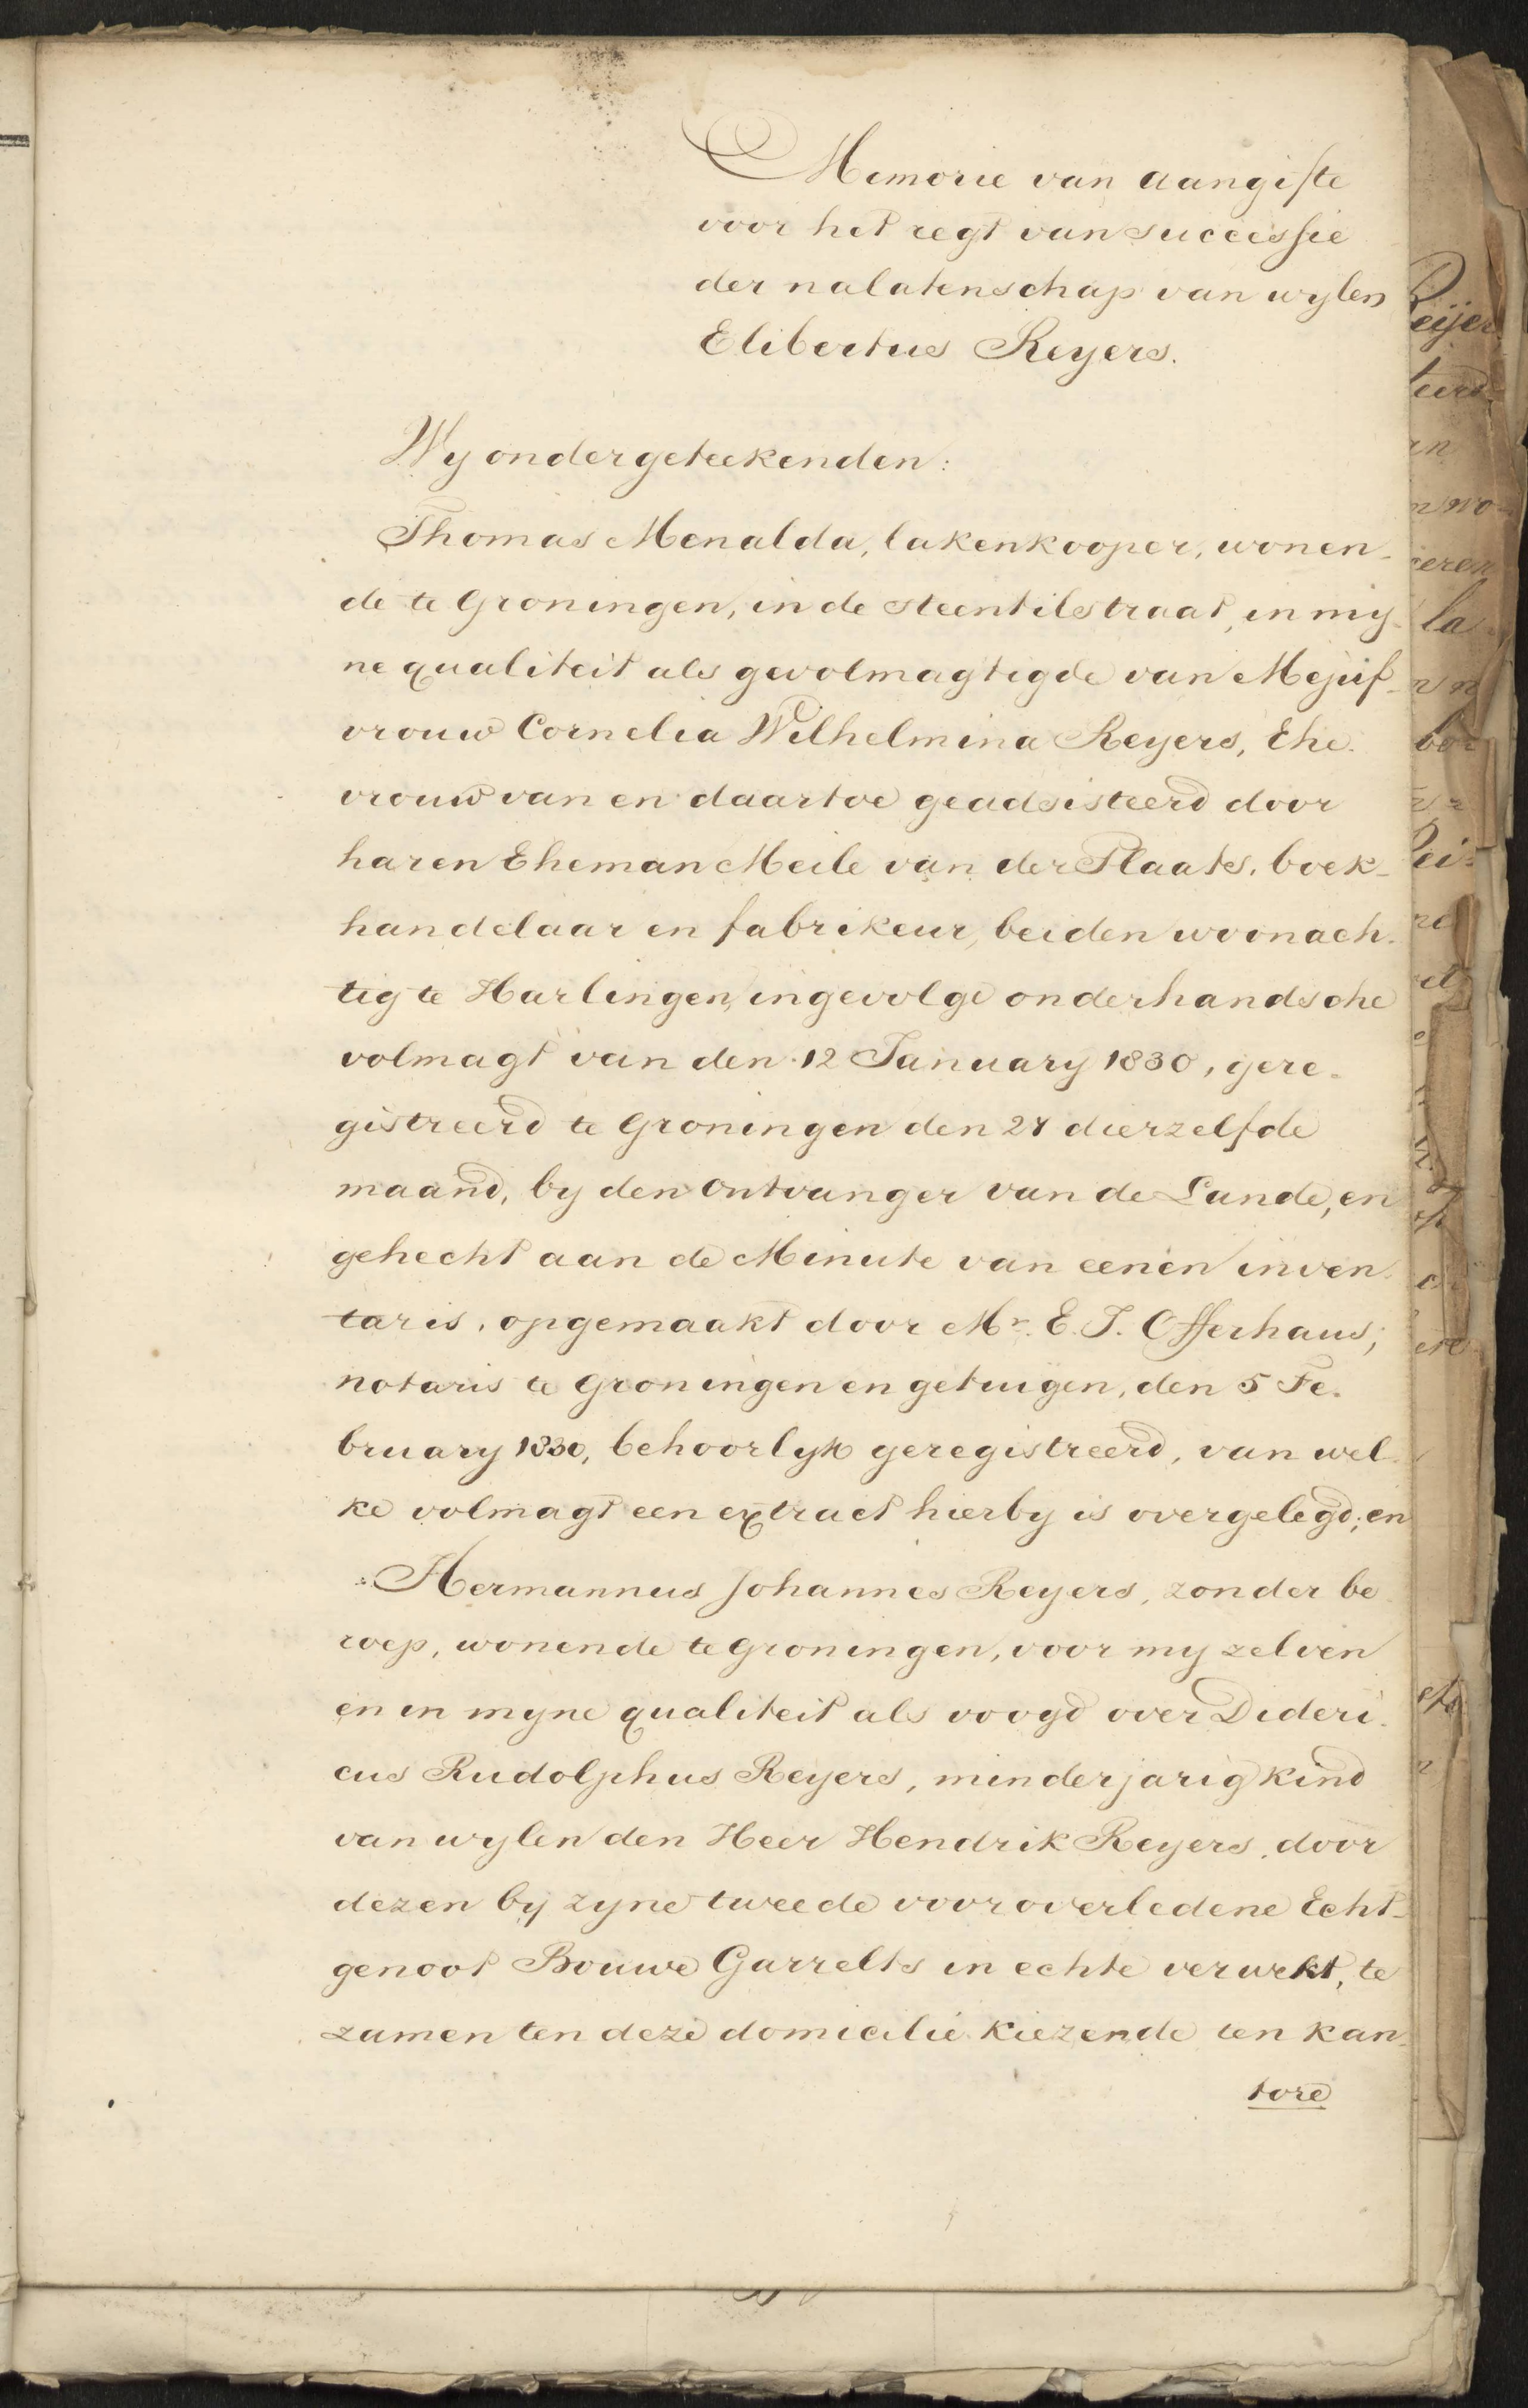 Memorie van aangifte
voor het regt van successie
der nalatenschap van wylen
Elibertus Reyers.
Wy ondergeteekenden:
Thomas Menalda, lakenkooper, wonen-
de te Groningen, in de steentilstraat, in my-
ne qualiteit als gevolmagtigde van Mejuf-
vrouw Cornelia Wilhelmina Reyers, Ehe-
vrouw van en daartoe geadsisteerd door
haren Eheman Meile van der Plaats, boek-
handelaar en fabrikeur, beiden woonach-
tig te Harlingen, ingevolge onderhandsche
volmagt van den 12 January 1830, gere-
gistreerd te Groningen den 27 dierzelfde
maand, by den Ontvanger van de Lande, en
gehecht aan de Minute van eenen inven-
taris, opgemaakt door Mr. E. J. Offerhaus,
notaris te Groningen en getuigen, den 5 Fe-
bruary 1830, behoorlyk geregistreerd, van wel-
ke volmagt een extract hierby is overgelegd; en
Hermannus Johannes Reyers, zonder be-
roep, wonende te Groningen, voor my zelven
en in myne qualiteit als voogd over Dideri-
cus Rudolphus Reyers, minderjarig kind
van wylen den Heer Hendrik Reyers, door
dezen by zyne tweede vooroverledene Echt-
genoot Bouwe Garrelts in echte verwekt, te
zamen ten deze domicilie kiezende ten kan-
tore